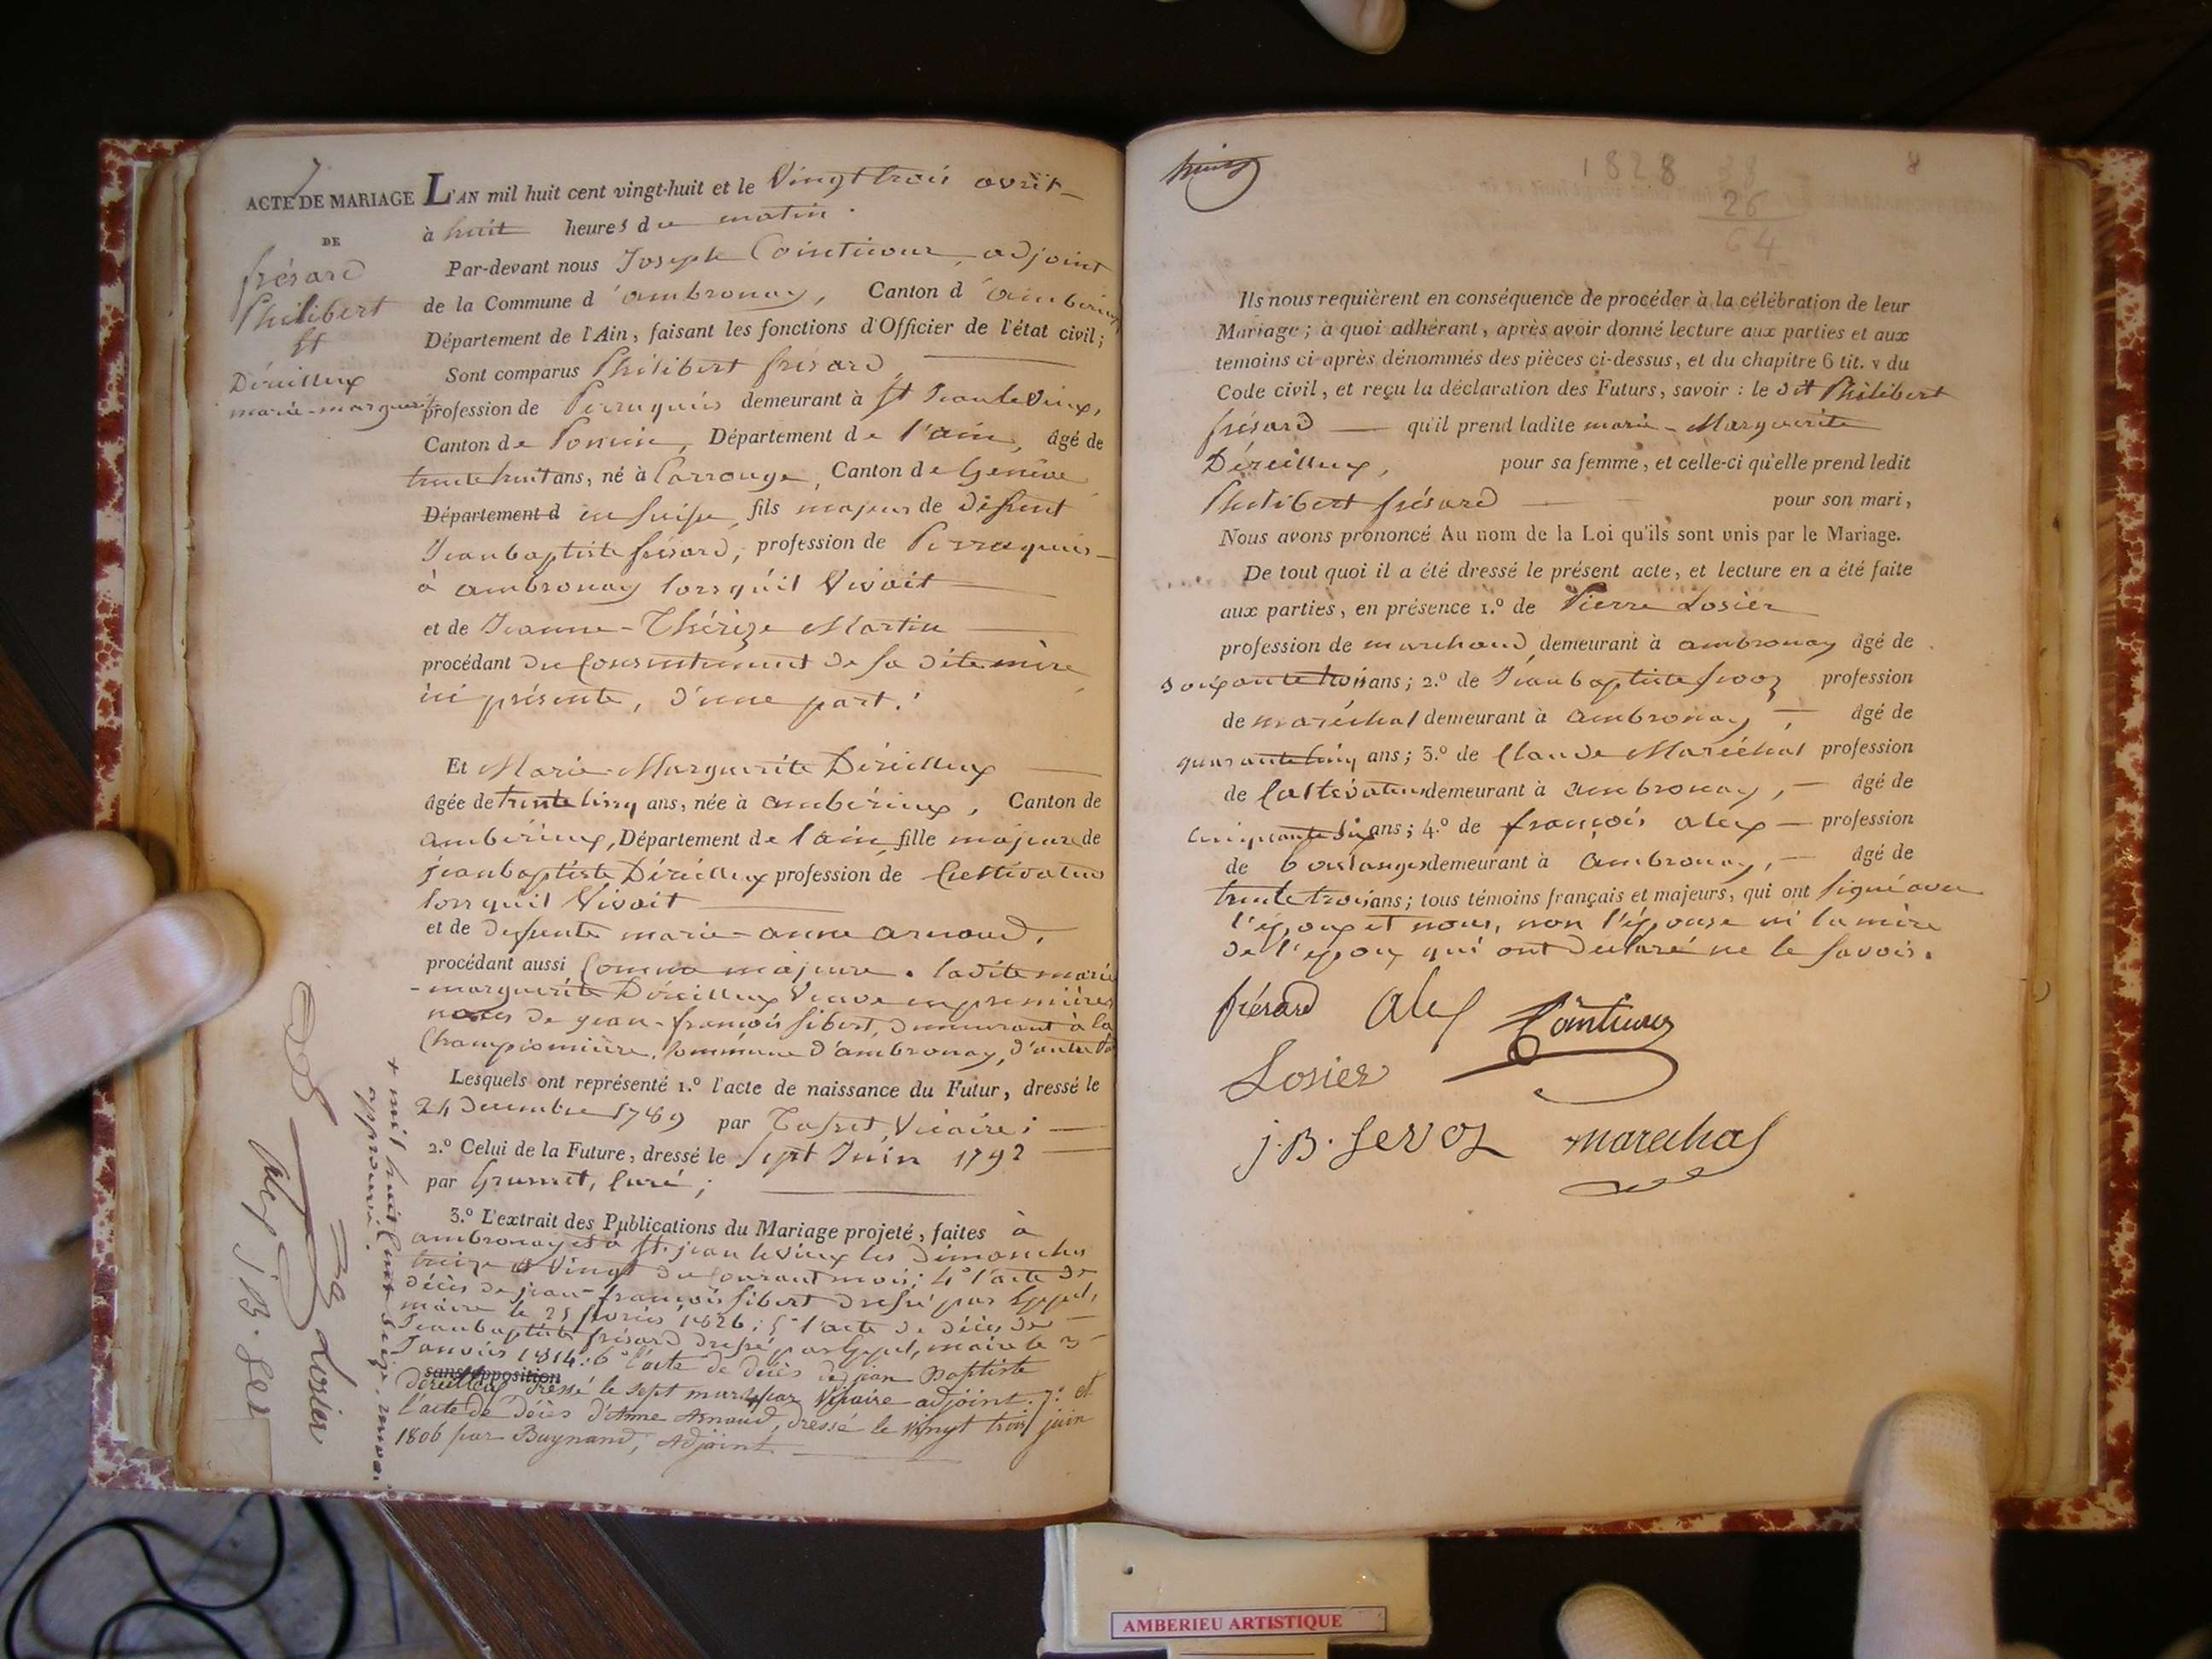 7
ACTE DE MARIAGE
DE
frésard
Philibert
et
Déreilleux
marie-marguerite
L'AN mil huit cent vingt-huit et le Vingt trois avril
à huit heures du matin.
Par-devant nous Joseph Cointicour, adjoint
de la Commune d'ambronay, Canton d'ambérieux
Département de l'Ain, faisant les fonctions d'Officier de l'état civil;
Sont comparus Philibert frésard
profession de Perruquier demeurant à St Jean le Vieux,
Canton de Poncin, Département de l'ain, âgé de
trente huit ans, né à Carrouge, Canton de Genève
Département d en Suisse, fils majeur de défunt
Jean baptiste frésard, profession de Perruquier
à ambronay lorsqu'il Vivait
et de Jeanne-Thérèze Martin
procédant du Consentement de sa dite mère
ici présente, d'une part.
Et Marie Marguerite Déreilleux
âgée de trente cinq ans, née à ambérieux, Canton de
ambérieux, Département de l'ain, fille majeure de
jean baptiste Déreilleux profession de Cultivateur
lorsqu'il Vivait
et de defunte marie-anne arnaud,
procédant aussi Comme majeure. ladite marie
-marguerite Déreilleux Veuve en premières
noces de jean-françois sibert, demeurant à la
Championnière, Commune d'ambronay, d'autre
Lesquels ont représenté 1.º l'acte de naissance du Futur, dressé le
24 Decembre 1789 par Vicaire;
2.º Celui de la Future, dressé le Sept Juin 1792
par Grumet, Curé;
3.º L'extrait des Publications du Mariage projeté, faites à
ambronay et à St. jean le Vieux les Dimanches
treize et Vingt du Courant mois; 4º l'acte de
décès de jean-françois sibert dressé par
maire le 25 février 1826; 5º l'acte de décès de
Jean baptiste frésard dressé par maire le 3
Janvier 1814; 6º l'acte de décès de jean Baptiste
sans opposition
déreilleux dressé le sept mars par adjoint. 7º et
l'acte de décès d'Anne Arnaud, dressé le vingt trois juin
1806 par Buynand, Adjoint
+ mil huit Cent seize.
approuvé.
Losier
Alex
J. B. Ser
huit
1828
28
26
64
8
Ils nous requièrent en conséquence de procéder à la célébration de leur
Mariage; à quoi adhérant, après avoir donné lecture aux parties et aux
temoins ci-après dénommés des pièces ci-dessus, et du chapitre 6 tit. v du
Code civil, et reçu la déclaration des Futurs, savoir: le dit Philibert
frésard qu'il prend ladite marie-Marguerite
Déreilleux, pour sa femme, et celle-ci qu'elle prend ledit
Philibert frésard pour son mari,
Nous avons prononcé Au nom de la Loi qu'ils sont unis par le Mariage.
De tout quoi il a été dressé le présent acte, et lecture en a été faite
aux parties, en présence 1.º de Pierre Losier
profession de marchand demeurant à ambronay âgé de
soixante trois ans; 2.º de Jean baptiste servoz profession
de maréchal demeurant à ambronay, âgé de
quarante cinq ans; 3.º de Claude Maréchal profession
de Cultivateur demeurant à ambronay, âgé de
Cinquante six ans; 4.º de françois alex profession
de boulanger demeurant à ambronay, âgé de
trente trois ans; tous témoins français et majeurs, qui ont signé avec
l'époux et nous, non l'épouse ni la mère
de l'époux qui ont déclaré ne le savoir.
frésard Alex Cointicour
Losier
j. B. Servoz marechal
AMBERIEU ARTISTIQUE